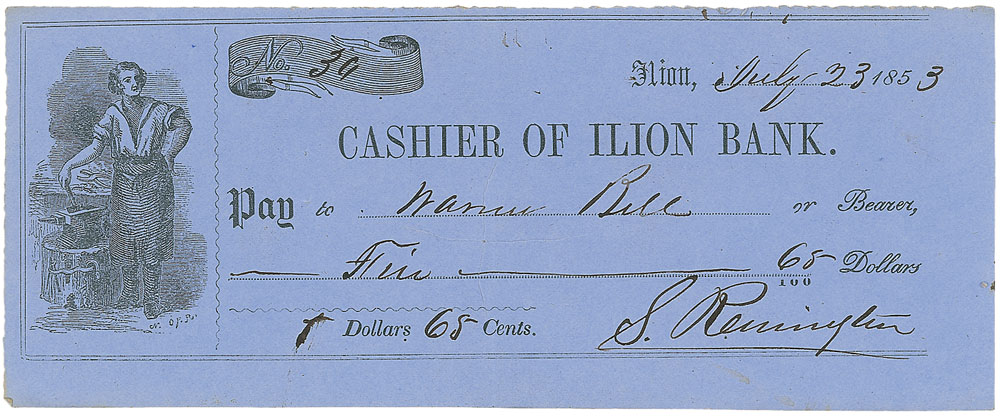 No. 39
Ilion, July 23 1853
CASHIER OF ILION BANK.
Pay to Warner Bell or Bearer,
65/100 Dollars
Dollars 65 Cents.
S. Remington